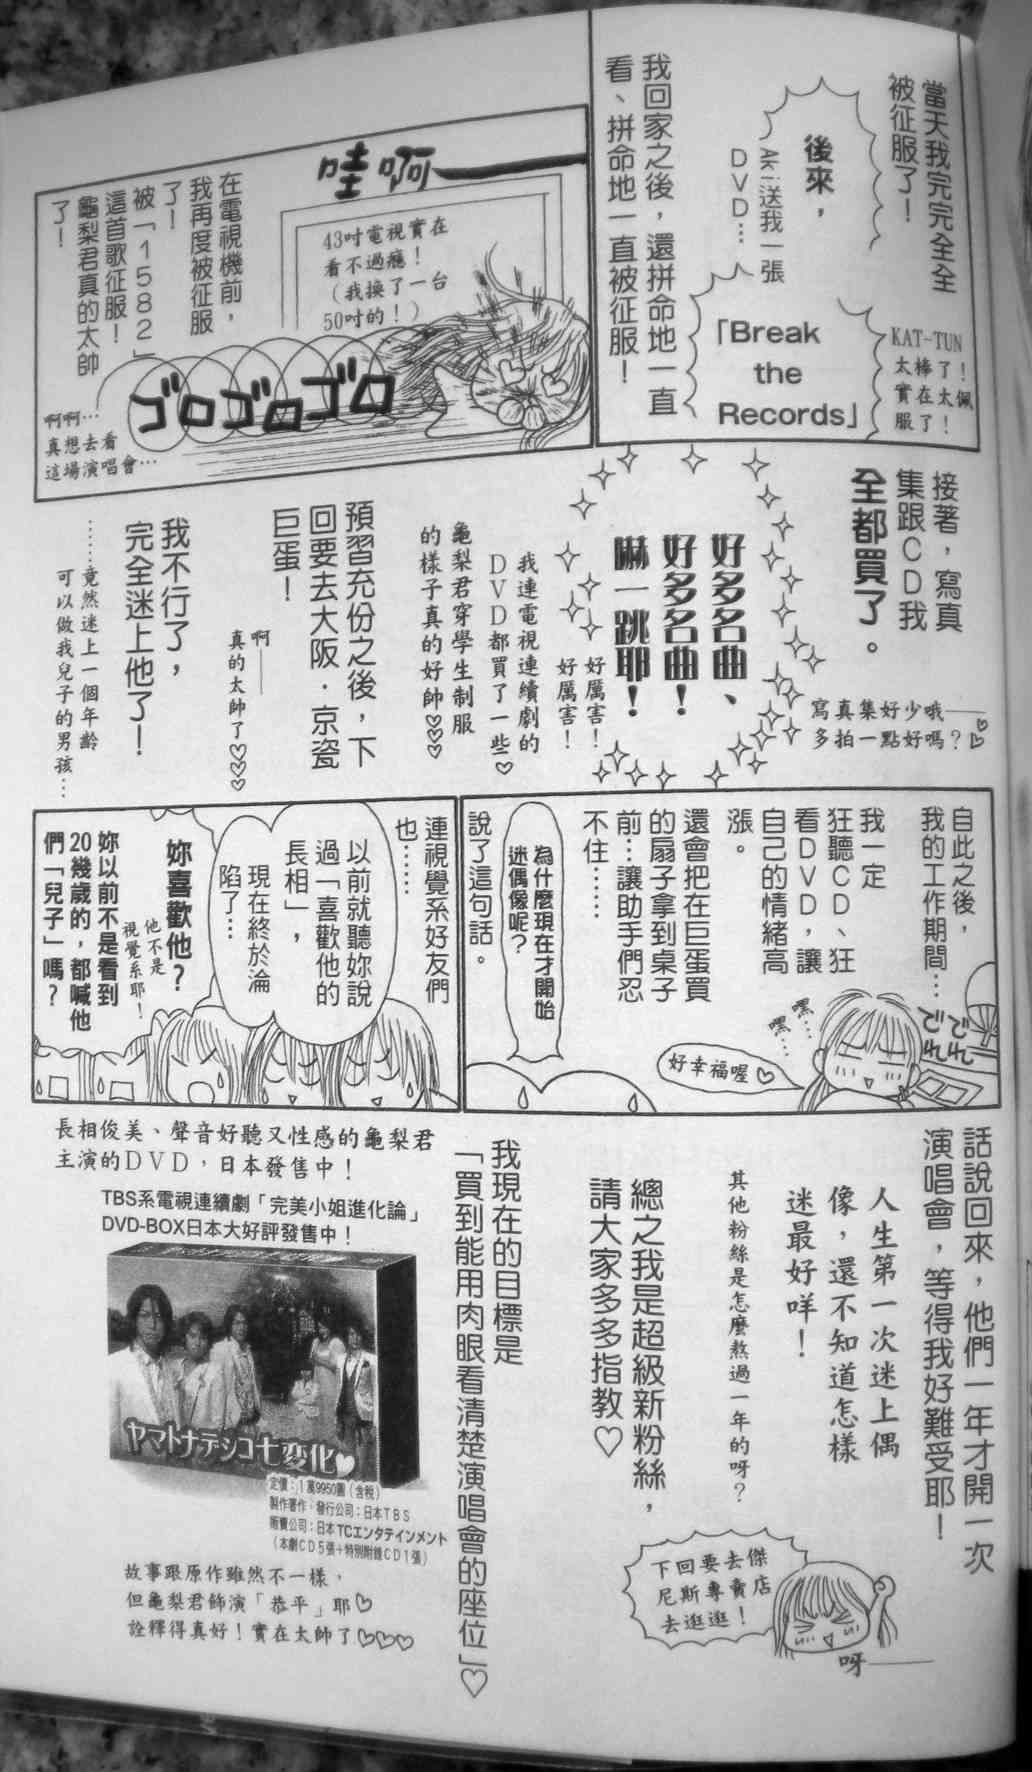 當天我完完全全
被征服了！
KAT-TUN
太棒了！
實在太佩
服了！
後來，
Aki送我一張
DVD…
「Break
the
Records」
我回家之後，還拼命地一直
看、拼命地一直被征服！
哇啊——
43吋電視實在
看不過癮！
（我換了一台
50吋的！）
在電視機前，
我再度被征服
了！
被「1582」
這首歌征服！
龜梨君真的太帥
了！
ゴロゴロゴロ
啊啊…
真想去看
這場演唱會…
接著，寫真
集跟CD我
全都買了。
寫真集好少哦——
多拍一點好嗎？♡
好多名曲、
好多名曲！
嚇一跳耶！
好厲害！
好厲害！
我連電視連續劇的
DVD都買了一些♡
龜梨君穿學生制服
的樣子真的好帥♡♡♡
預習充份之後，下
回要去大阪．京瓷
巨蛋！
啊——
真的太帥了♡♡♡
我不行了，
完全迷上他了！
……竟然迷上一個年齡
可以做我兒子的男孩…
自此之後，
我的工作期間…
我一定
狂聽CD、狂
看DVD，讓
自己的情緒高
漲。
還會把在巨蛋買
的扇子拿到桌子
前…讓助手們忍
不住……
でれでれ
嘿…
嘿…
好幸福喔♡
為什麼現在才開始
迷偶像呢？
說了這句話。
連視覺系好友們
也……
以前就聽妳說
過「喜歡他的
長相」，
現在終於淪
陷了…
妳喜歡他？
他不是
視覺系耶！
妳以前不是看到
20幾歲的，都喊他
們「兒子」嗎？
話說回來，他們一年才開一次
演唱會，等得我好難受耶！
人生第一次迷上偶
像，還不知道怎樣
迷最好咩！
其他粉絲是怎麼熬過一年的呀？
總之我是超級新粉絲，
請大家多多指教♡
下回要去傑
尼斯專賣店
去逛逛！
呀——
我現在的目標是
「買到能用肉眼看清楚演唱會的座位」♡
長相俊美、聲音好聽又性感的龜梨君
主演的DVD，日本發售中！
TBS系電視連續劇「完美小姐進化論」
DVD-BOX日本大好評發售中！
ヤマトナデシコ七変化♡
定價：1萬9950圓（含稅）
製作著作・發行公司：日本TBS
販賣公司：日本TCエンタテインメント
（本劇CD5張＋特別附錄CD1張）
故事跟原作雖然不一樣，
但龜梨君飾演「恭平」耶♡
詮釋得真好！實在太帥了♡♡♡